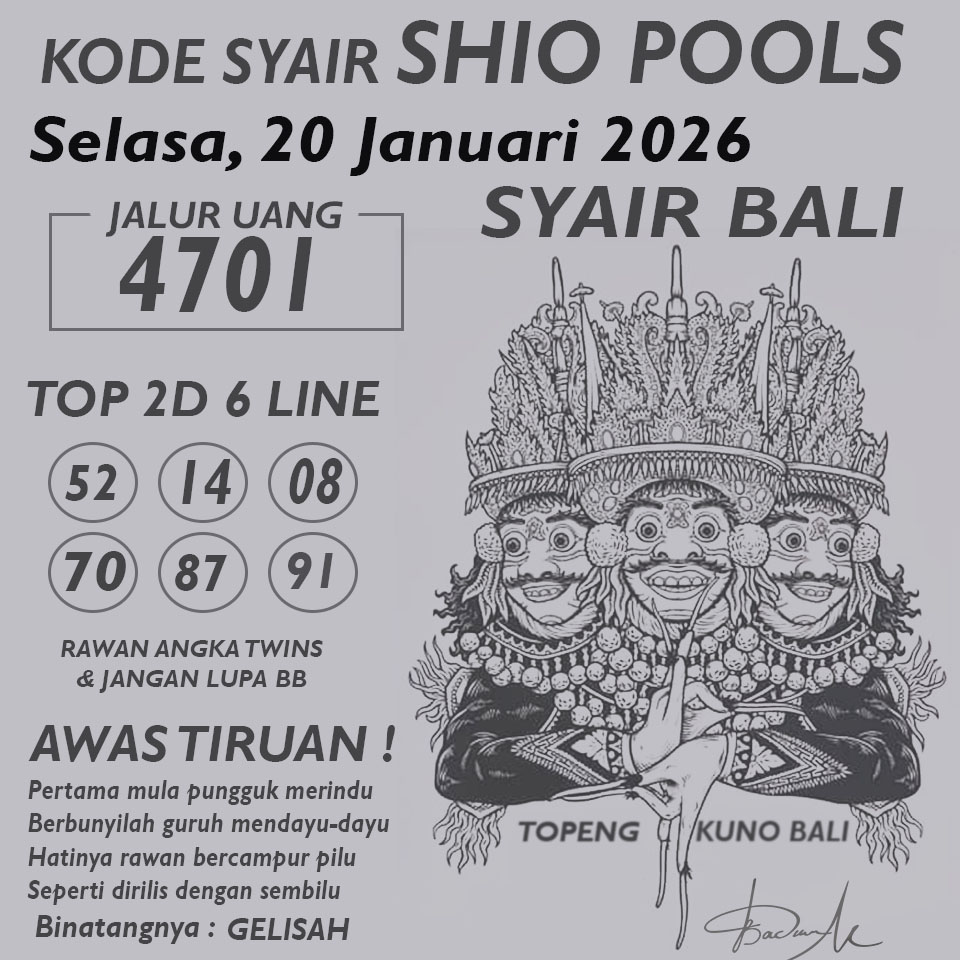 KODE SYAIR SHIO POOLS
Selasa, 20 Januari 2026
SYAIR BALI
JALUR UANG
4701
TOP 2D 6 LINE
52 14 08
70 87 91
RAWAN ANGKA TWINS
& JANGAN LUPA BB
AWAS TIRUAN !
Pertama mula pungguk merindu
Berbunyilah guruh mendayu-dayu
Hatinya rawan bercampur pilu
Seperti dirilis dengan sembilu
Binatangnya : GELISAH
TOPENG KUNO BALI